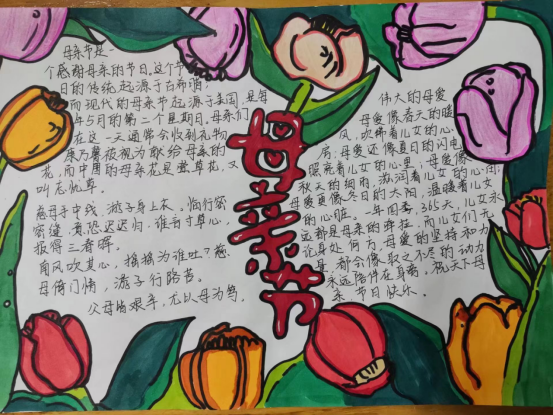 母亲节是一
个感谢母亲的节日。这个节
日的传统起源于古希腊，
而现代的母亲节起源于美国，是每
年5月的第二个星期日。母亲们
在这一天通常会收到礼物
康乃馨被视为献给母亲的
花，而中国的母亲花是萱草花，又
叫忘忧草。
慈母手中线，游子身上衣。临行密
密缝，意恐迟迟归。谁言寸草心，
报得三春晖。
南风吹其心，摇摇为谁吐？慈
母倚门情，游子行路苦。
父母皆艰辛，尤以母为笃。
母亲节
伟大的母爱
母爱像春天的暖
风，吹拂着儿女的心
房；母爱还像夏日的闪电
照亮着儿女的心里；母爱像
秋天的细雨，滋润着儿女的心田；
母爱更像冬日的太阳，温暖着儿女
的心脏。一年四季，365天，儿女永
远都是母亲的牵挂，而儿女们无
论身处何方，母爱的坚持和力
量，都会像取之不尽的动力
永远陪伴在身旁，祝天下母
亲，节日快乐。